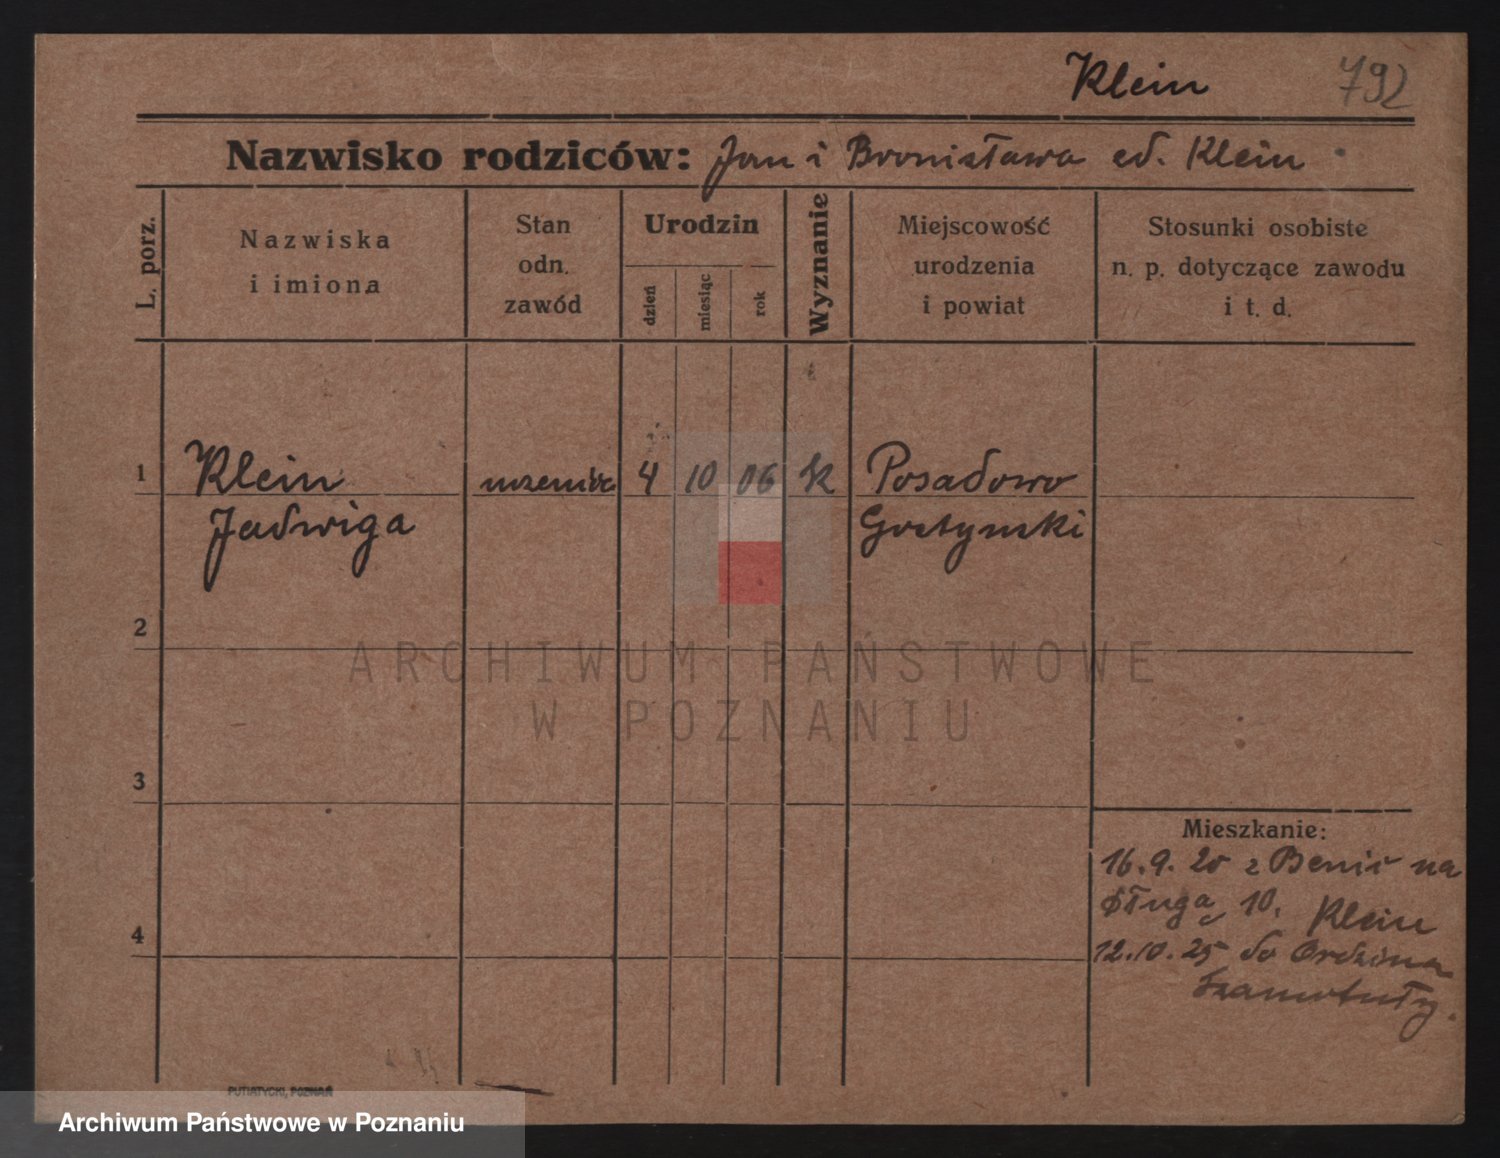 Klein 792
Nazwisko rodziców: Jan i Bronisława ed. Klein
L. porz.
Nazwiska
i imiona
Stan
odn.
zawód
Urodzin
dzień
miesiąc
rok
Wyznanie
Miejscowość
urodzenia
i powiat
Stosunki osobiste
n. p. dotyczące zawodu
i t. d.
1 Klein 4 10 06 k Posadowo
Jadwiga Gostynski
2
ARCHIWUM PAŃSTWOWE
W POZNANIU
3
Mieszkanie:
16.9.20 z Benic na
Długa 10. Klein
4
12.10.25 do Ordzina
Szamotuły.
PUTIATYCKI, POZNAŃ
Archiwum Państwowe w Poznaniu